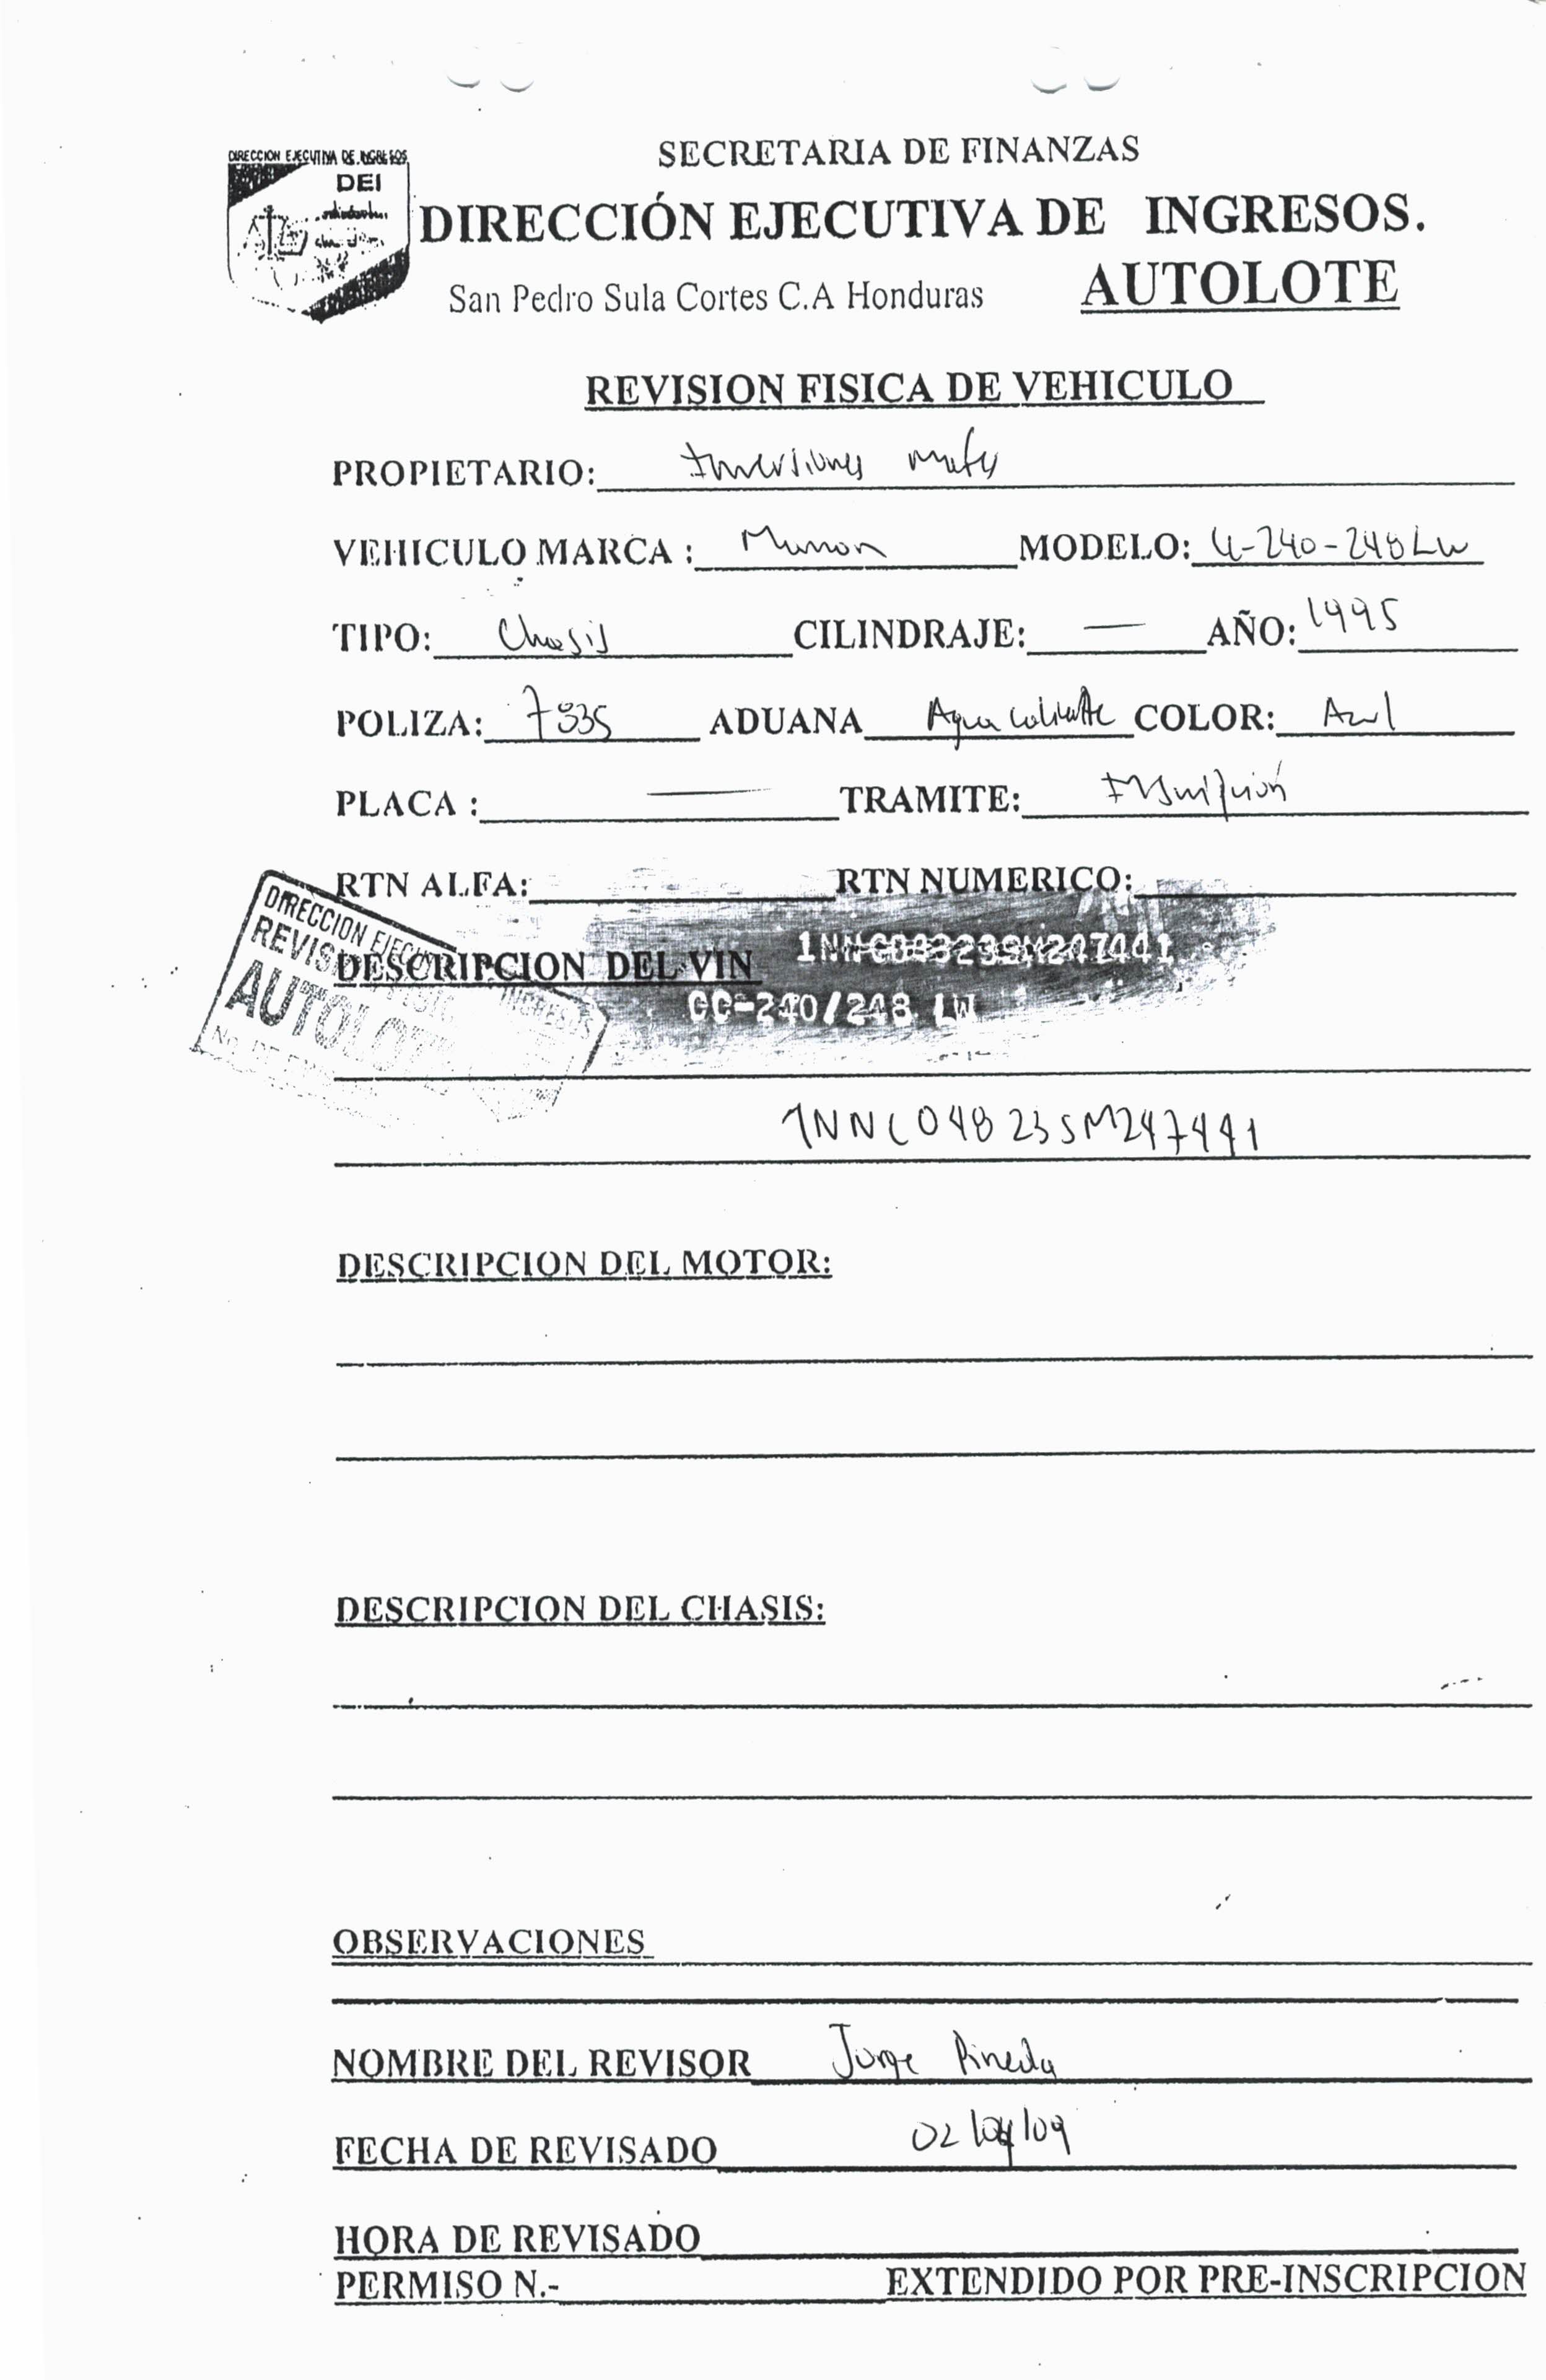 DIRECCION EJECUTIVA DE INGRESOS
DEI
SECRETARIA DE FINANZAS
DIRECCIÓN EJECUTIVA DE INGRESOS.
San Pedro Sula Cortes C.A Honduras AUTOLOTE
REVISION FISICA DE VEHICULO
PROPIETARIO: Inversiones
VEHICULO MARCA : MODELO: 240-248LW
TIPO: Chasis CILINDRAJE: — AÑO: 1995
POLIZA: 7335 ADUANA Agua caliente COLOR: Azul
PLACA : — TRAMITE: Inscripción
RTN ALFA: RTN NUMERICO:
DIRECCION INGRESOS
AUTOLOTE
DESCRIPCION DEL VIN
CC-240/248 LW
1NNC04823SM247441
DESCRIPCION DEL MOTOR:
DESCRIPCION DEL CHASIS:
OBSERVACIONES
NOMBRE DEL REVISOR Jorge Pineda
FECHA DE REVISADO 02/04/09
HORA DE REVISADO
PERMISO N.- EXTENDIDO POR PRE-INSCRIPCION